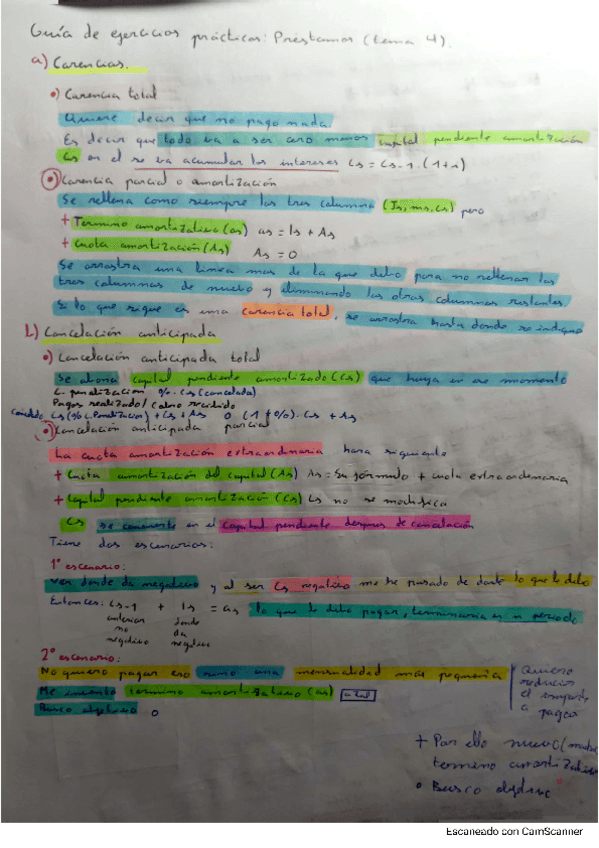 Guía de ejercicios prácticos: Préstamos (tema 4).
a) Carencias.
•) Carencia total
Quiere decir que no pago nada.
Es decir que todo va a ser cero menos capital pendiente amortización
Cs en el se va acumular los intereses Cs = Cs-1 · (1+i)
•) Carencia parcial o amortización
Se rellena como siempre las tres columna (Is, ms, Cs) pero
+ Termino amortizativo (as) as = Is + As
+ Cuota amortización (As) As = 0
Se arrastra una linea mas de la que debo para no rellenar las
tres columnas de nuevo y eliminando las otras columnas restantes
Si lo que sigue es una carencia total, se arrastra hasta donde se indique
b) Cancelación anticipada
•) Cancelación anticipada total
Se abona capital pendiente amortizado (Cs) que haya en ese momento
C. penalización %. Cs (cancelada)
Pagos realizado/ Cobro recibido
Cs (% C. Penalización) + Cs + As o (1 + %). Cs + As
•) Cancelación anticipada parcial
La cuota amortización extraordinaria hara siguiente
+ Cuota amortización del capital (As) As = Su fórmula + cuota extraordinaria
+ Capital pendiente amortización (Cs) Cs no se modifica
Cs se convierte en el capital pendiente despues de cancelación
Tiene dos escenarios:
1º escenario:
Ver donde da negativo y al ser Cs negativo me he pasado de donde lo que le debo
Entonces: Cs-1 + Is = as lo que le debo pagar, terminaria en n periodo
anterior donde
no da
negativo negativo
2º escenario:
No quiero pagar eso sino una mensualidad mas pequeña
Quiero reducir el importe a pagar
Me invento termino amortizativo (as)
Busco objetivo 0
+ Por ello nuevo
termino amortizativo
• Busco objetivo
Escaneado con CamScanner